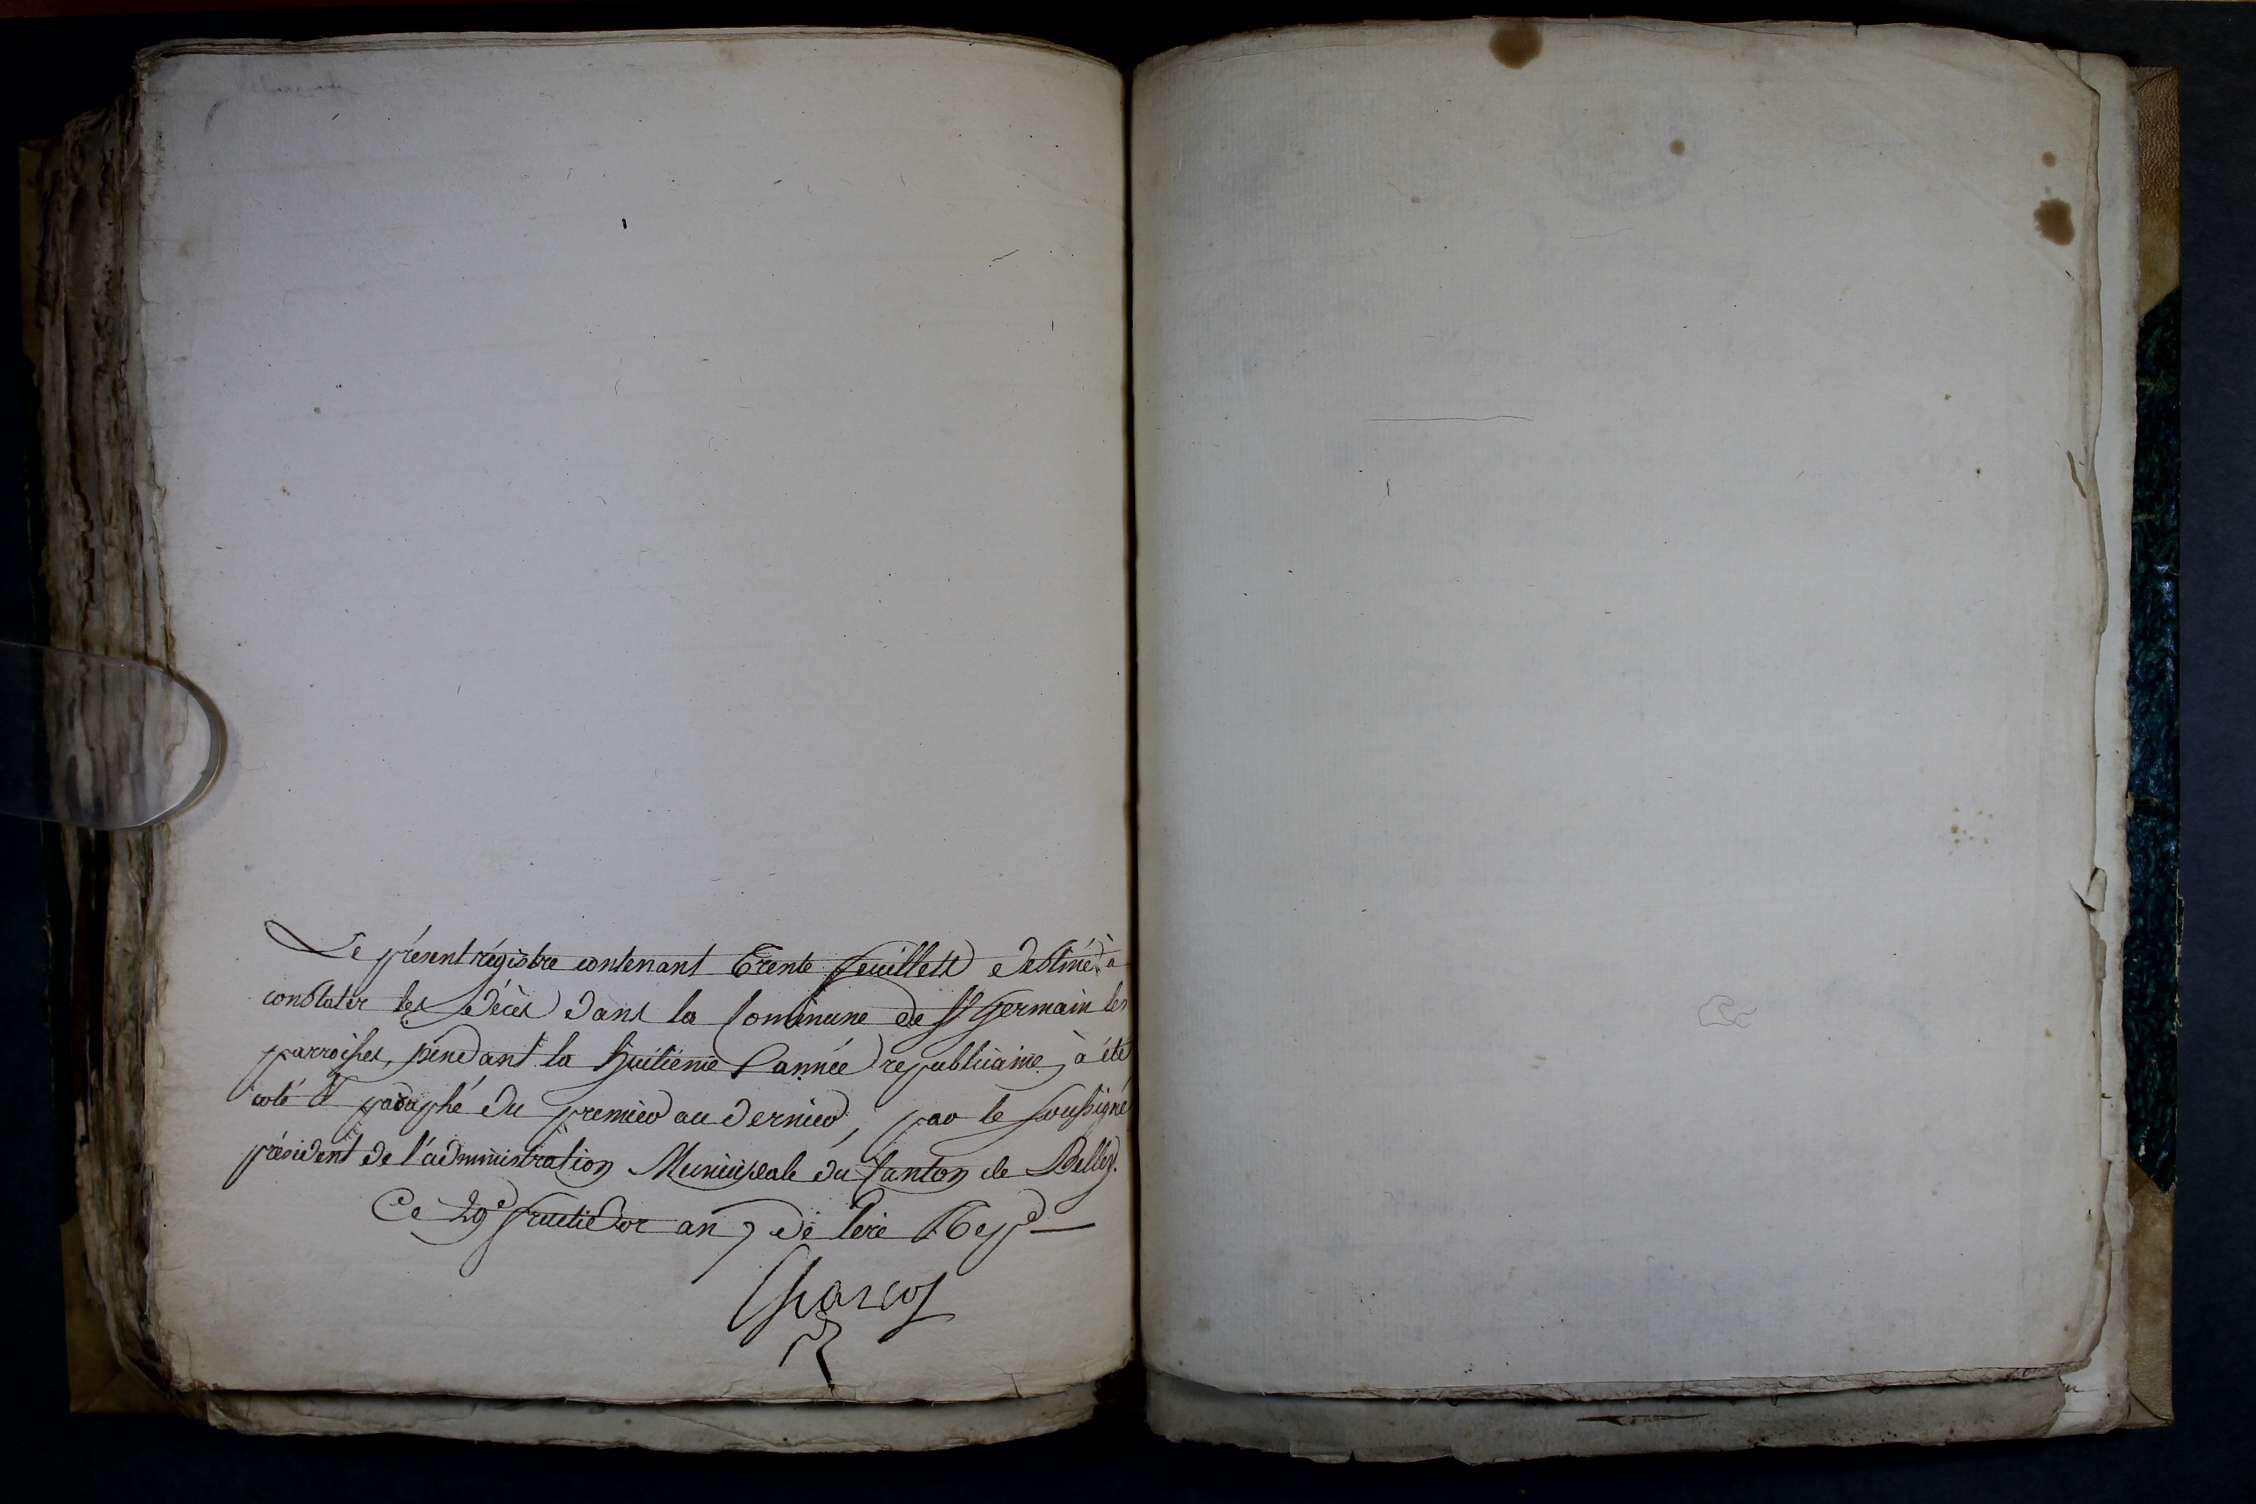 Le présent régistre contenant Trente feuillets destiné à
constater les Décès dans la Commune de St Germain les
parroisses, pendant la huitieme année republicaine, à été
coté et paraphé du premier au dernier, par le soussigné
président de l'administration Municipale du Canton de Belley.
Ce 29e fructidor an 7 de l'ere Rep
Charcot